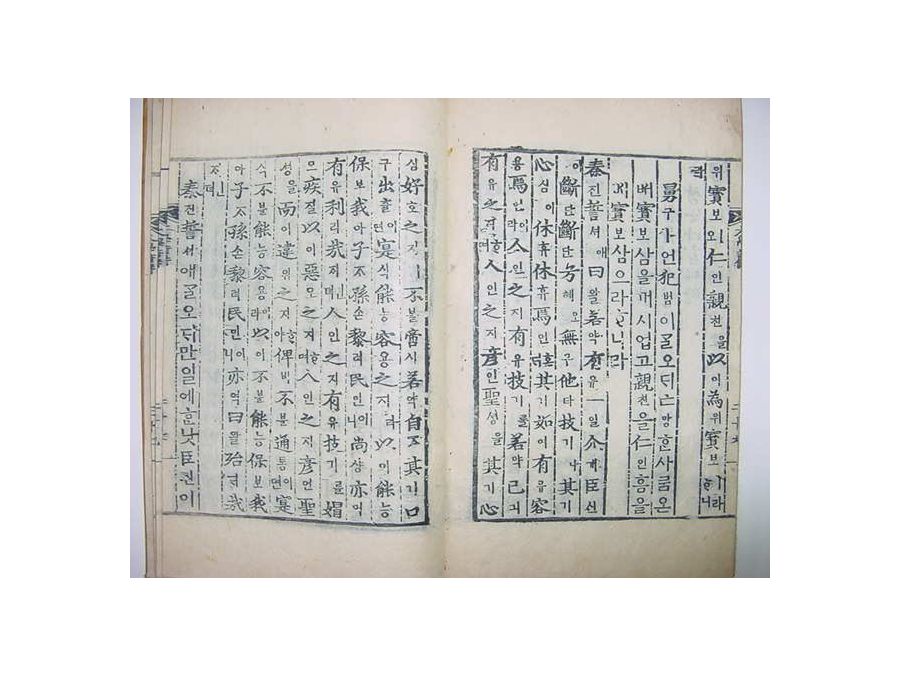 위寶보오仁인親친을以이爲위寶보ㅣ라ᄒᆞ니
라
舅구犯범이ᄀᆞᆯ오ᄃᆡ망ᄒᆞᆫ사ᄅᆞᆷ은
ᄡᅥ寶보삼을꺼시업고親친을仁인홈을
ᄡᅥ寶보삼으라ᄒᆞ니라
秦진誓셔애曰왈若약有유一일介개臣신
이斷단斷단兮혜오無무他타技기나其기
心심이休휴休휴焉언혼디其기如여有유容
용焉언이라人인之지有유技기를若약己긔
有유之지ᄒᆞ며人인之지彦언聖셩을其기心
심好호之지ㅣ不블啻시若약自ᄌᆞ其기口
구出츌이면寔식能능容용之지라以이能능
保보我아子ᄌᆞ孫손黎려民민이니尙샹亦역
有유利리哉ᄌᆡᆫ뎌人인之지有유技기를媢
모疾질以이惡오之지ᄒᆞ며人인之지彦언聖
셩을而이違위之지ᄒᆞ야俾비不블通통이면寔
식不블能능容용이라以이不블能능保보我
아子ᄌᆞ孫손黎려民민이니亦역曰왈殆ᄐᆡ哉
ᄌᆡᆫ뎌
秦진誓셔애ᄀᆞᆯ오ᄃᆡ만일에ᄒᆞᆫ낫臣신이